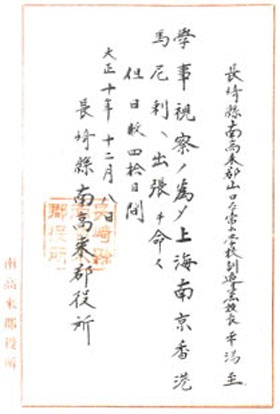 長崎縣南高来郡山口尋常小学校訓導兼校長 平湯 至
學事視察ノ爲メ上海南京香港
馬尼利ヘ出張ヲ命ズ
但日数四拾日間
大正十年十二月八日
長崎縣南高来郡役所
長崎縣
郡役所
南高来郡役所